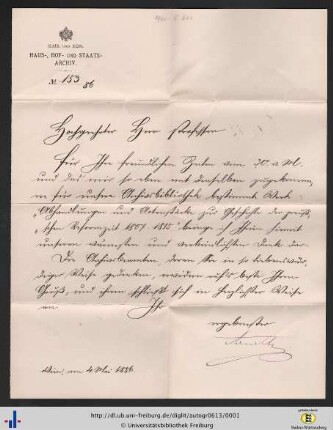 KAIS. UND KÖN.
HAUS-, HOF- UND STAATS-
ARCHIV.
№ 153
86
Hochgeehrter Herr Professor
Für Ihre freundlichen Zeilen vom 30. v. M.
und das mir so eben mit denselben zugekommene
für unsere Archivsbibliothek bestimmte Werk
„Abhandlungen und Actenstücke zur Geschichte der preuß
schen Reformzeit 1807-1815" bringe ich Ihnen hiemit
unseren wärmsten und verbindlichsten Dank dar.
Die Archivbeamten, deren Sie in so liebenswür
diger Weise gedenken, erwidern aufs beste Ihren
Gruß, und ihnen schließt sich in herzlichster Weise
an Ihr
ergebenster
Arneth
Wien, am 4 Mai 1886.
http://dl.ub.uni-freiburg.de/diglit/autogr0613/0001
© Universitätsbibliothek Freiburg
Baden-Württemberg